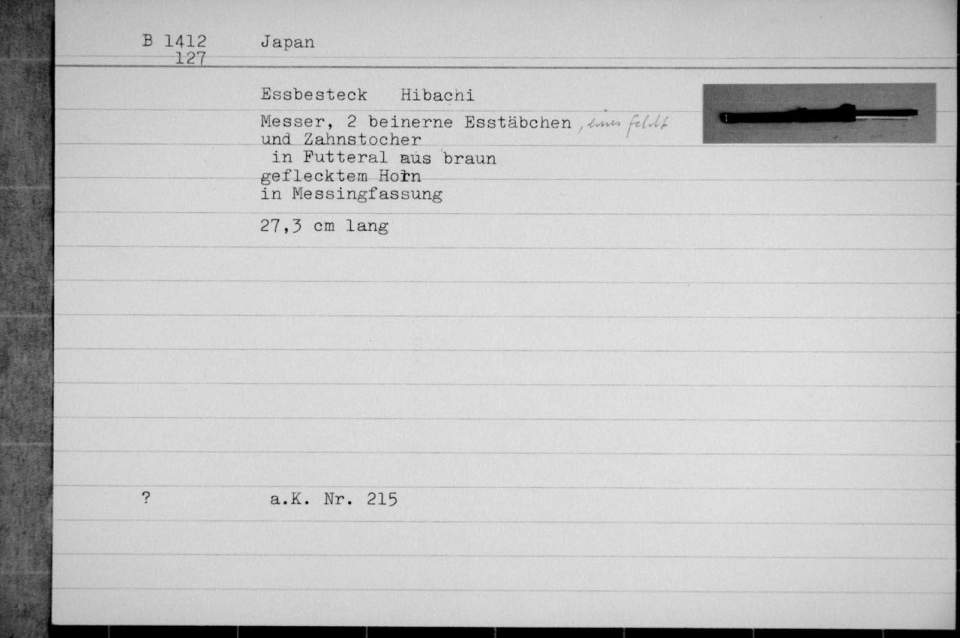 B 1412 Japan
127
Essbesteck Hibachi
Messer, 2 beinerne Esstäbchen, eines fehlt
und Zahnstocher
in Futteral aus braun
geflecktem Horn
in Messingfassung
27,3 cm lang
? a.K. Nr. 215